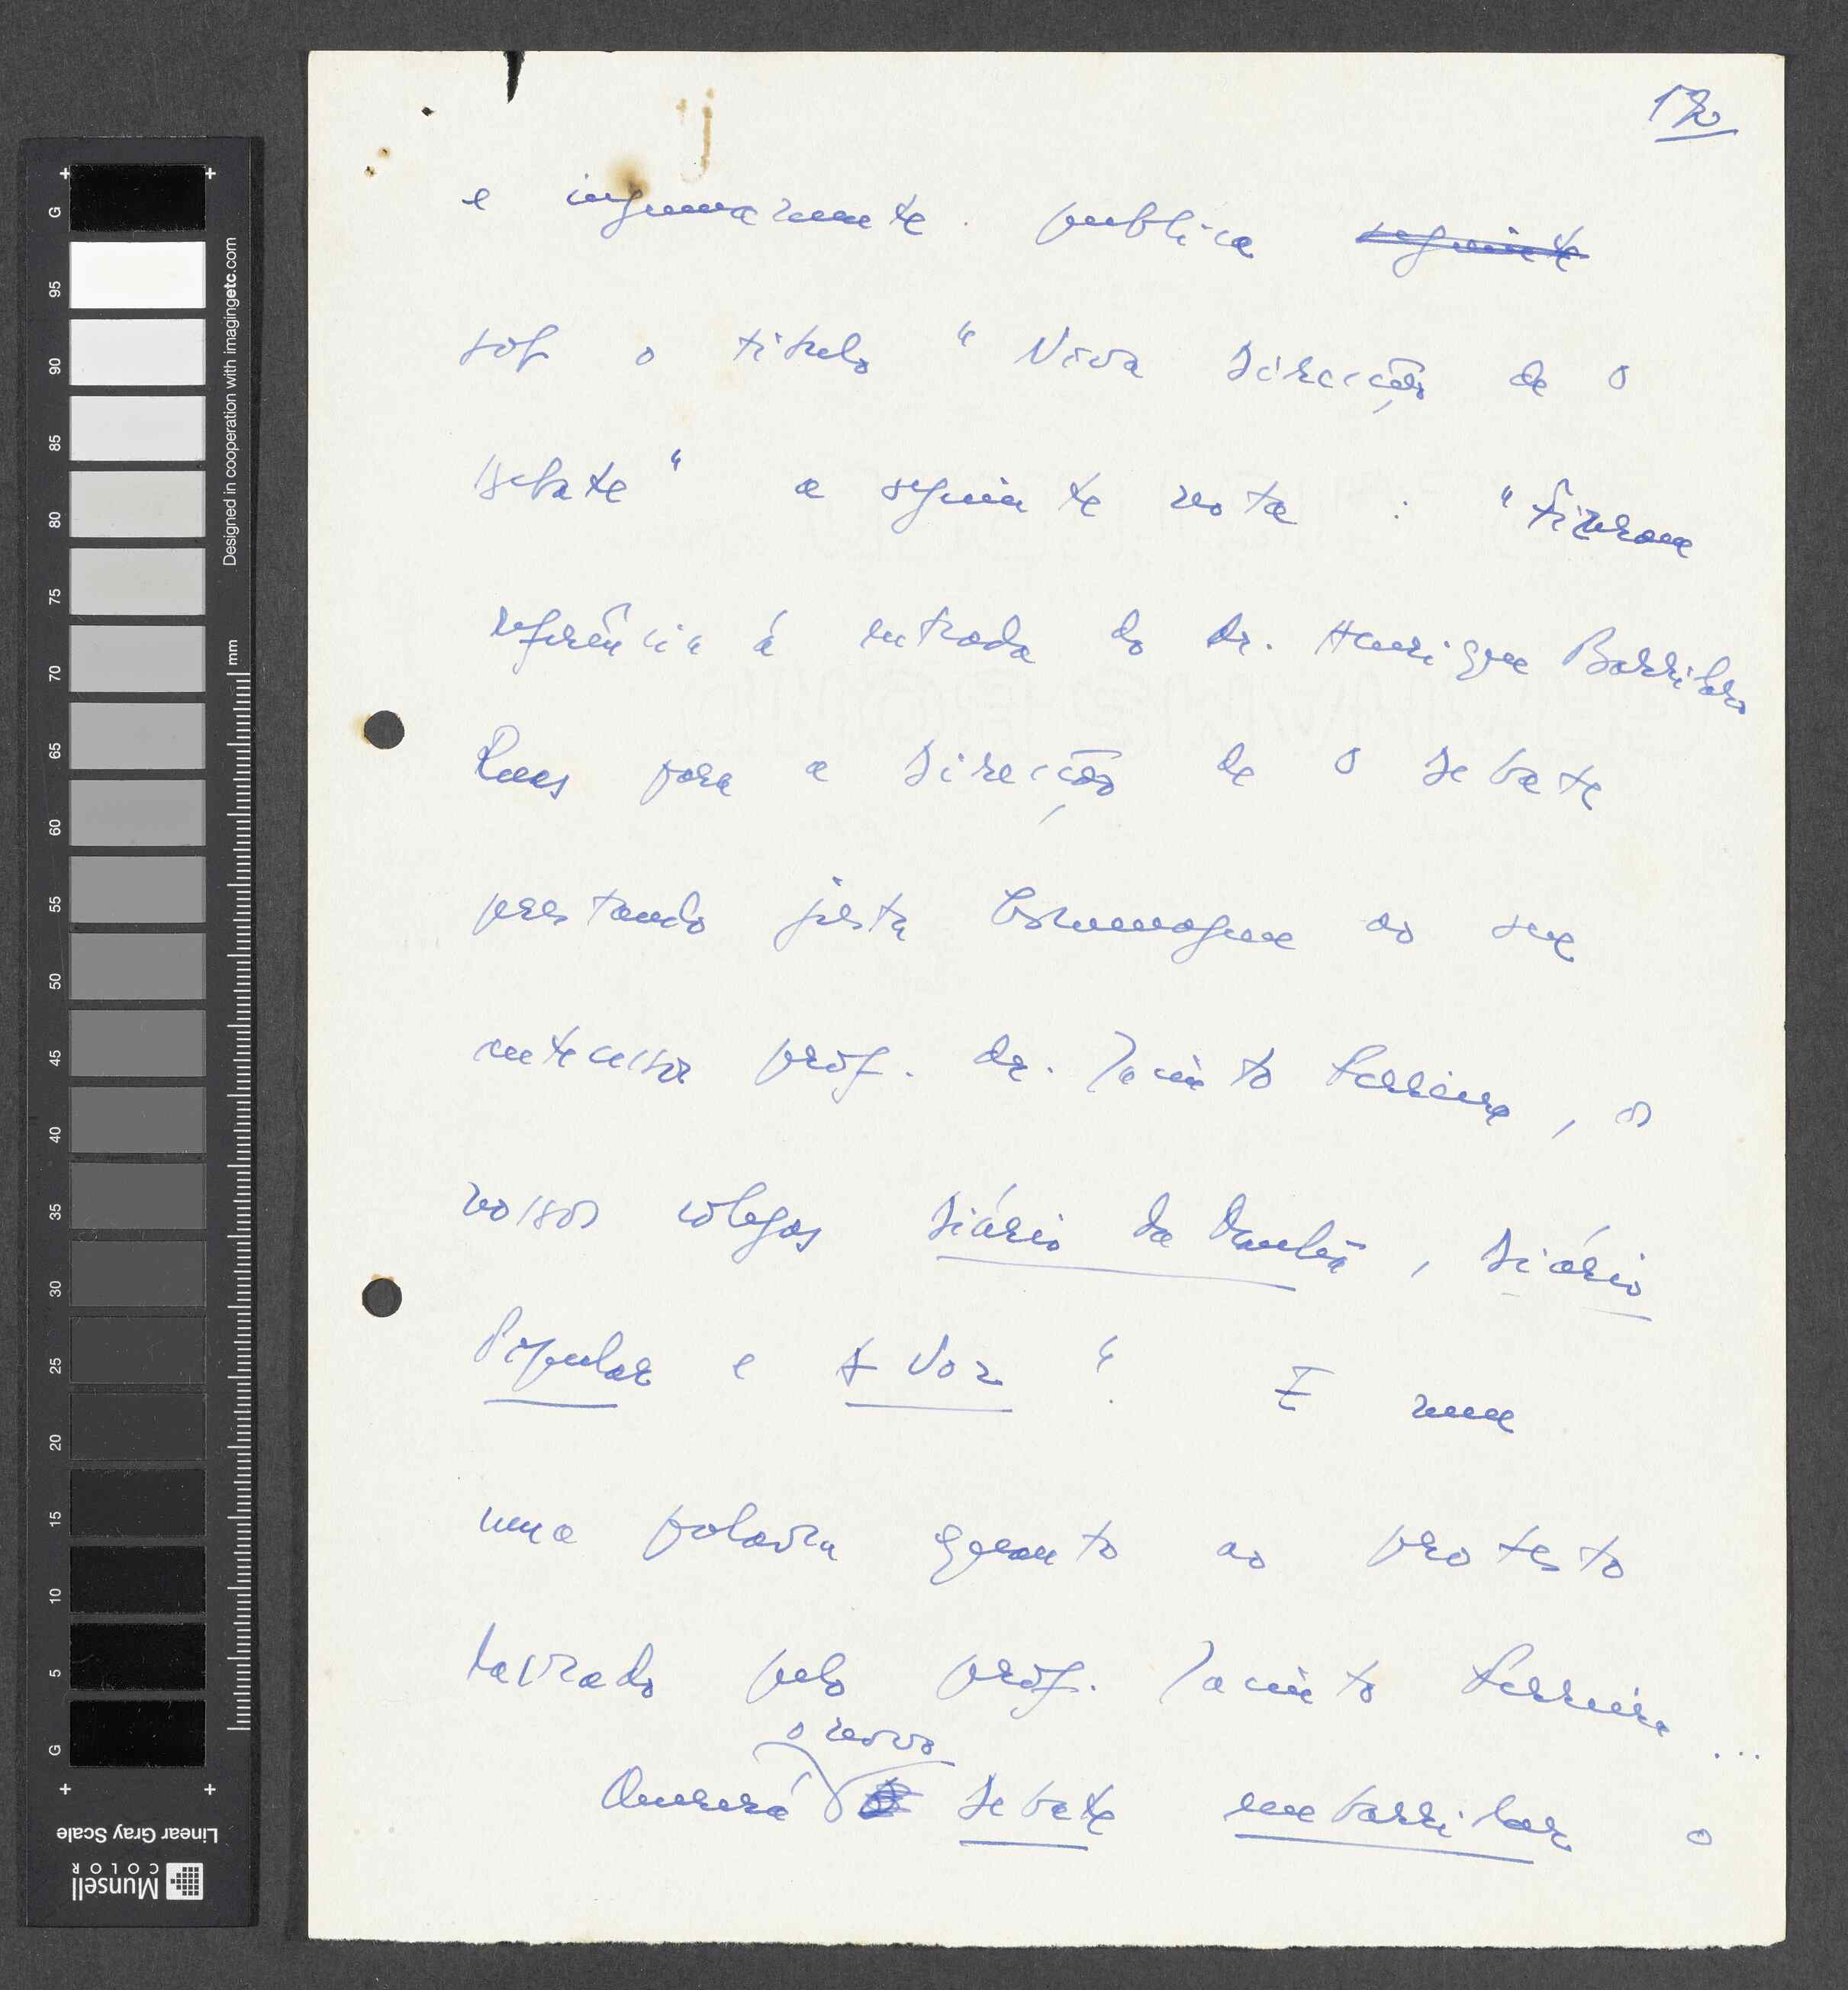 172
e ingenuamente publica seguinte
sob o titulo " Nova Direcção de O
Debate " a seguinte nota : " Fizeram
referência á entrada do Dr. Henrique Barrilaro
Ruas para a Direcção de O Debate
prestando justa homenagem ao seu
antecessor prof. Dr. Jacinto Ferreira, os
nossos colegas Diário da Manhã, Diário
Popular e A Voz ". E nem
uma palavra quanto ao protesto
lavrado pelo prof. Jacinto Ferreira ...
o novo
Quererá Debate embarrilar o
G
95
90
85
80
75
70
65
60
55
50
45
40
35
30
25
20
15
10
5
G
mm
Designed in cooperation with imagingetc.com
Linear Gray Scale
Munsell
COLOR